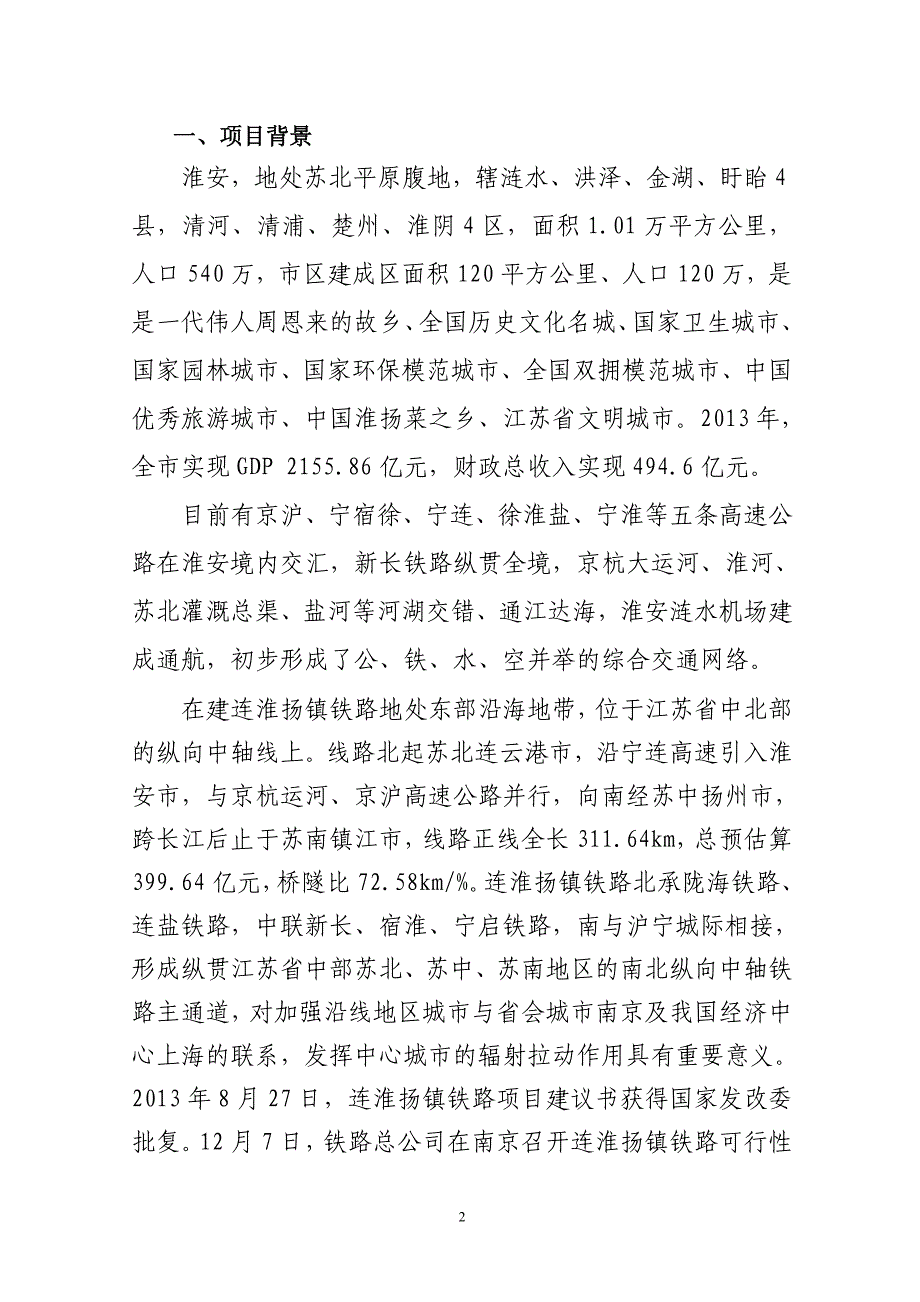 一、项目背景
淮安，地处苏北平原腹地，辖涟水、洪泽、金湖、盱眙 4
县，清河、清浦、楚州、淮阴 4 区，面积 1.01 万平方公里，
人口 540 万，市区建成区面积 120 平方公里、人口 120 万，是
是一代伟人周恩来的故乡、全国历史文化名城、国家卫生城市、
国家园林城市、国家环保模范城市、全国双拥模范城市、中国
优秀旅游城市、中国淮扬菜之乡、江苏省文明城市。2013 年，
全市实现 GDP 2155.86 亿元，财政总收入实现 494.6 亿元。
目前有京沪、宁宿徐、宁连、徐淮盐、宁淮等五条高速公
路在淮安境内交汇，新长铁路纵贯全境，京杭大运河、淮河、
苏北灌溉总渠、盐河等河湖交错、通江达海，淮安涟水机场建
成通航，初步形成了公、铁、水、空并举的综合交通网络。
在建连淮扬镇铁路地处东部沿海地带，位于江苏省中北部
的纵向中轴线上。线路北起苏北连云港市，沿宁连高速引入淮
安市，与京杭运河、京沪高速公路并行，向南经苏中扬州市，
跨长江后止于苏南镇江市，线路正线全长 311.64km，总预估算
399.64 亿元，桥隧比 72.58km/%。连淮扬镇铁路北承陇海铁路、
连盐铁路，中联新长、宿淮、宁启铁路，南与沪宁城际相接，
形成纵贯江苏省中部苏北、苏中、苏南地区的南北纵向中轴铁
路主通道，对加强沿线地区城市与省会城市南京及我国经济中
心上海的联系，发挥中心城市的辐射拉动作用具有重要意义。
2013 年 8 月 27 日，连淮扬镇铁路项目建议书获得国家发改委
批复。12 月 7 日，铁路总公司在南京召开连淮扬镇铁路可行性
2